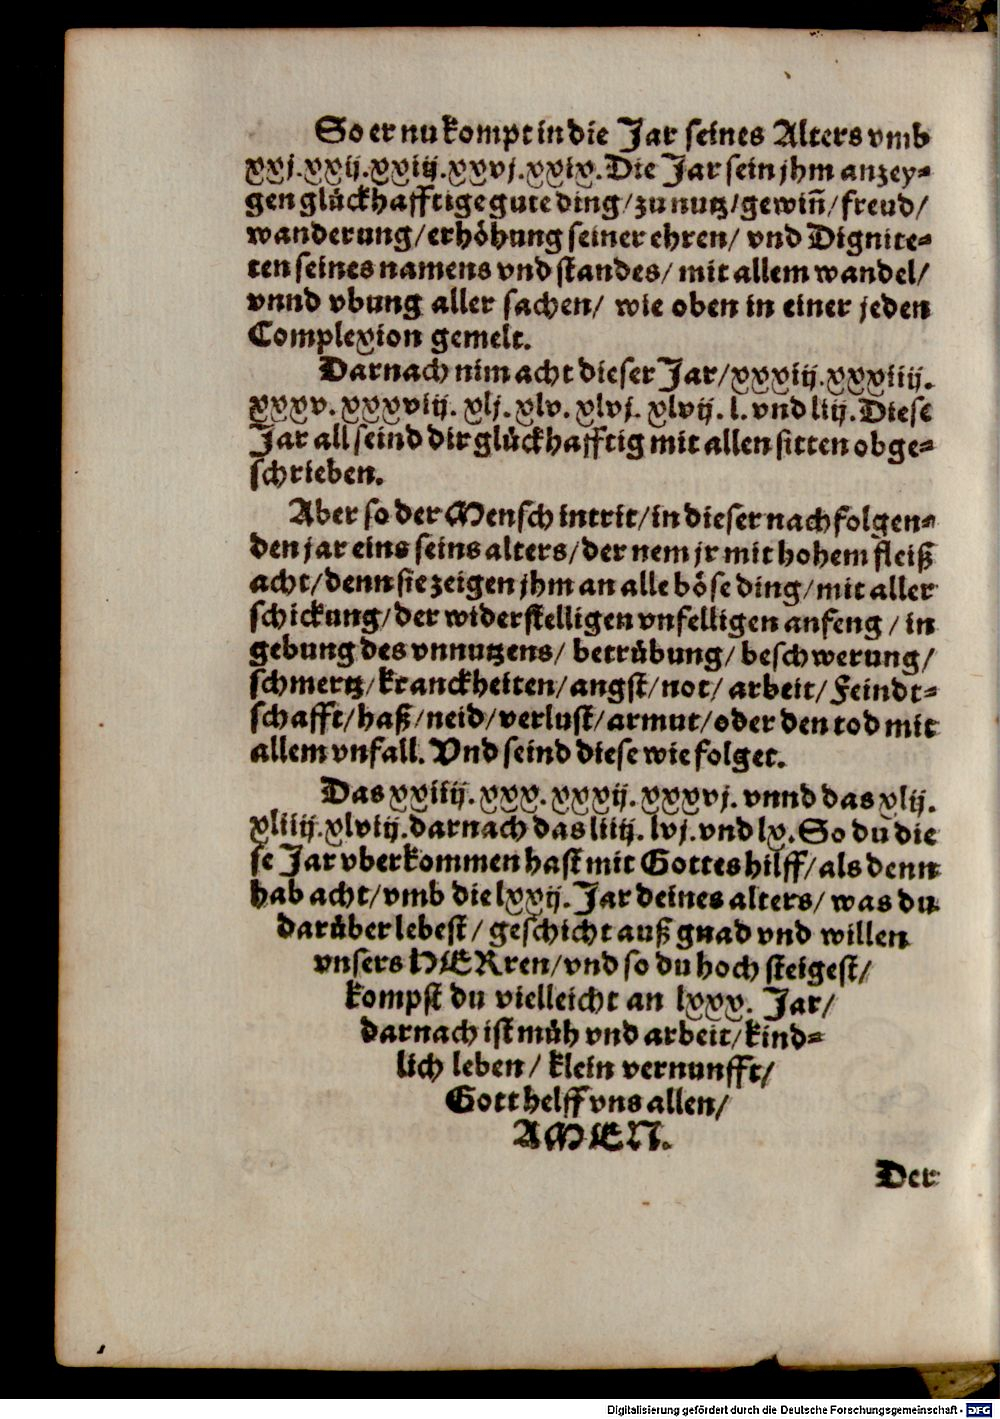 So er nu kompt in die Jar seines Alters vmb
xxj. xxij. xxiij. xxvj. xxix. Die Jar sein jhm anzey⸗
gen glückhafftige gute ding/ zu nutz/ gewiñ/ freud/
wanderung/ erhöhung seiner ehren/ vnd Dignite⸗
ten seines namens vnd standes/ mit allem wandel/
vnnd vbung aller sachen/ wie oben in einer jeden
Complexion gemelt.
Darnach nim acht dieser Jar/ xxxiij. xxxiiij.
xxxv. xxxviij. xlj. xlv. xlvj. xlvij. l. vnd lij. Diese
Jar all seind dir glückhafftig mit allen sitten obge⸗
schrieben.
Aber so der Mensch intrit/ in dieser nachfolgen⸗
den jar eins seins alters/ der nem jr mit hohem fleiß
acht/ denn sie zeigen jhm an alle böse ding/ mit aller
schickung/ der widerstelligen vnfelligen anfeng/ in
gebung des vnnutzens/ betrübung/ beschwerung/
schmertz/ kranckheiten/ angst/ not/ arbeit/ Feindt⸗
schafft/ haß/ neid/ verlust/ armut/ oder den tod mit
allem vnfall. Vnd seind diese wie folget.
Das xxiiij. xxx. xxxij. xxxvj. vnnd das xlij.
xliiij. xlviij. darnach das liiij. lvj. vnd lx. So du die
se Jar vberkommen hast mit Gottes hilff/ als denn
hab acht/ vmb die lxxij. Jar deines alters/ was du
darüber lebest/ geschicht auß gnad vnd willen
vnsers HERren/ vnd so du hoch steigest/
kompst du vielleicht an lxxx. Jar/
darnach ist müh vnd arbeit/ kind⸗
lich leben/ klein vernunfft/
Gott helff vns allen/
AMEN.
Der
Digitalisierung gefördert durch die Deutsche Forschungsgemeinschaft - DFG